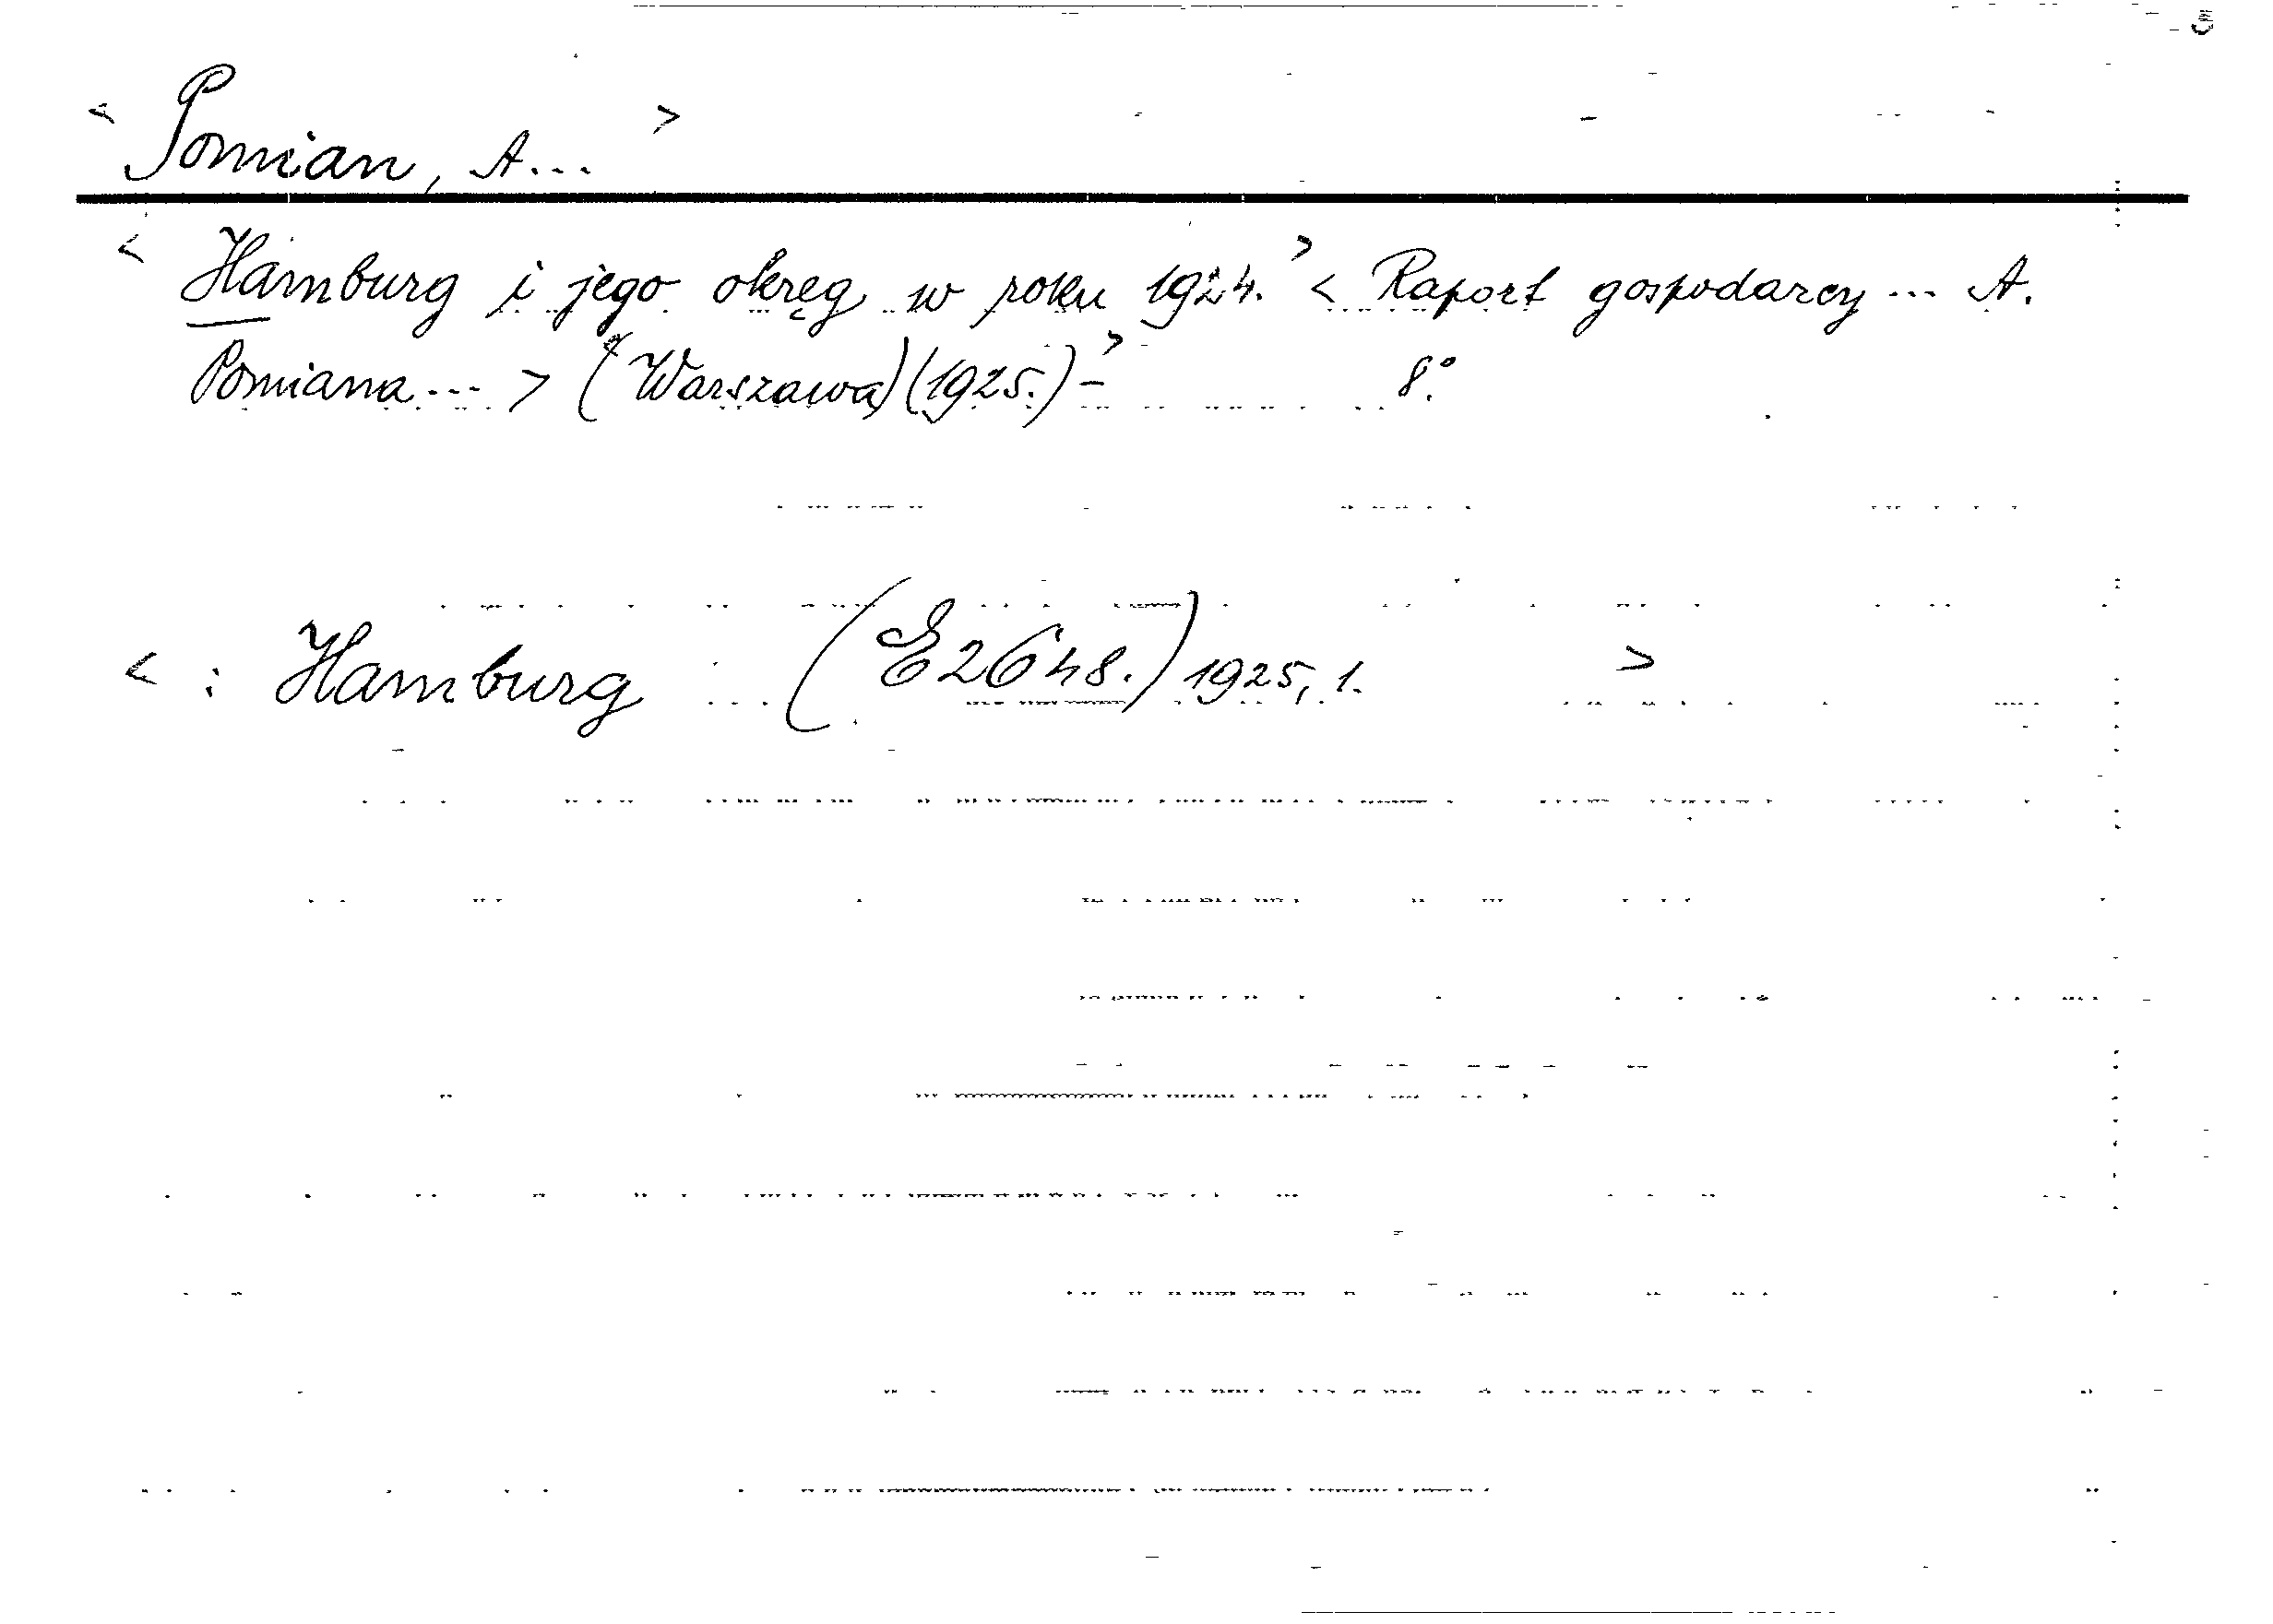 < Pomian, A... >
< Hamburg i jego okręg w roku 1924. > < Raport gospodarcy ... A.
Pomiana ... > (< Warszawa) (1925.) - > 8°.
< : Hamburg ... (E2648.) 1925, 1. >